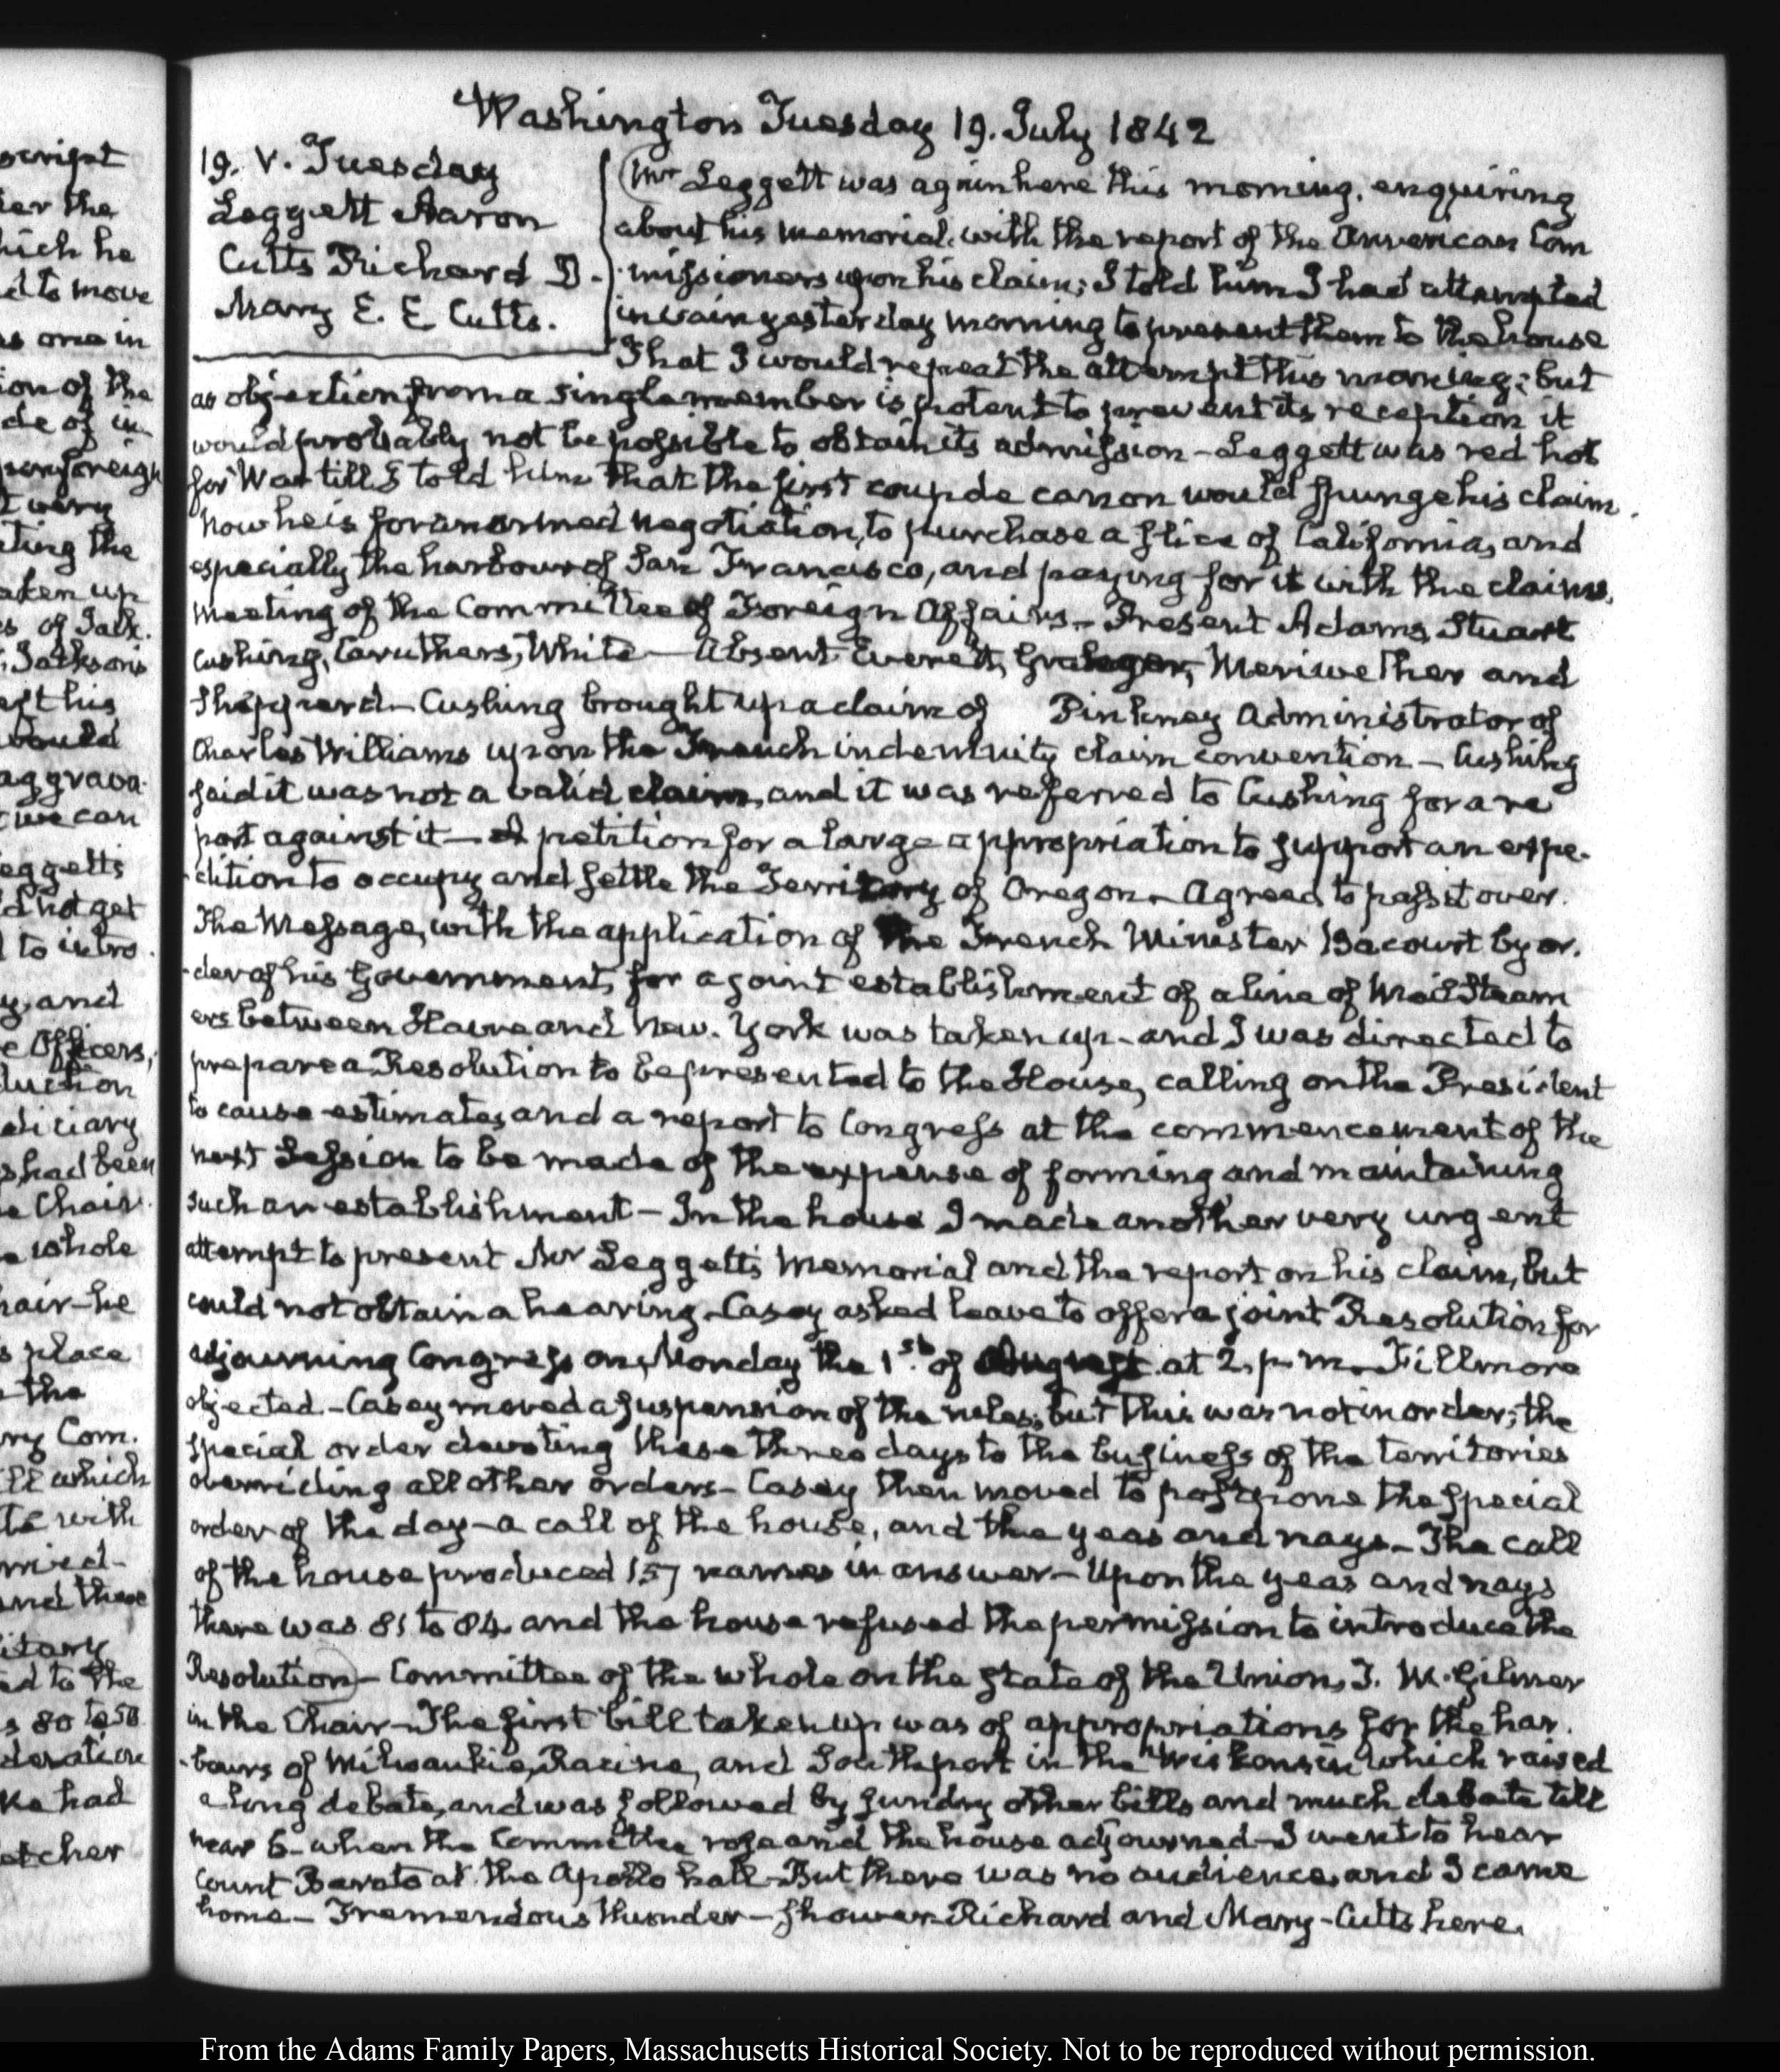 script
ier the
hich he
d to move
as one in
ion of the
de of in
pon foreign
t very
ting the
aken up
s of Talk.
Jackson's
eft his
would
aggrava
we can
eggetts
d not get
to intro
y, and
e Officers,
duction
diciary
s had been
e Chair
e whole
hair–he
s place
the
ry Com.
ll which
te with
mied-
and these
itory
ed to the
s 80 to 50
deration
ke had
etcher
Washington Tuesday 19. July 1842
19. V. Tuesday
Leggett Aaron
Cutts Richard D.
Mary E. E Cutts.
Mr Leggett was again here this morning, enquiring
about his memorial, with the report of the American Com
missioners upon his claim; I told him I had attempted
in vain yesterday morning to present them to the house
That I would repeat the attempt this morning; but
as objection from a single member is potent to prevent its reception it
would probably not be possible to obtain its admission – Leggett was red hot
for War till I told him that the first coup de canon would spunge his claim.
Now he is for an armed negotiation, to purchase a slice of California, and
especially the harbour of San Francisco, and paying for it with the claims.
Meeting of the Committee of Foreign Affairs – Present Adams, Stuart
Cushing, Caruthers, White – Absent Everett, Granger, Meriwether and
Shepperd – Cushing brought up a claim of Pinkney Administrator of
Charles Williams upon the French indemnity claim convention – Cushing
said it was not a valid claim, and it was referred to Cushing for a re
port against it – A petition for a large appropriation to support an expe-
dition to occupy and settle the Territory of Oregon – Agreed to pass it over.
The Message, with the application of the French Minister Bacourt by or.
der of his Government, for a joint establishment of a line of Mail Steam
ers between Havre and New. York was taken up – and I was directed to
prepare a Resolution to be presented to the House, calling on the President
to cause estimates, and a report to Congress at the commencement of the
next Session to be made of the expense of forming and maintaining
such an establishment – In the house I made another very urgent
attempt to present Mr Leggett's Memorial and the report on his claim, but
could not obtain a hearing – Casey asked leave to offer a joint Resolution for
adjourning Congress on, Monday the 1st. of August at 2. p. m. Fillmore
objected – Casey moved a suspension of the rules; but this was not in order; the
special order devoting these three days to the business of the territories
overriding all other orders – Casey then moved to postpone the special
order of the day – a call of the house, and the yeas and nays – The call
of the house produced 157 names in answer – Upon the yeas and nays
there was 81 to 84 and the house refused the permission to introduce the
Resolution – Committee of the whole on the state of the Union, T. W. Gilmer
in the Chair – The first bill taken up was of appropriations for the har.
bours of Milwaukie, Racine, and Southport in the Wiskonsin which raised
a long debate, and was followed by sundry other bills and much debate till
near 6 – when the Committee rose and the house adjourned – I went to hear
Count Barato at the Apollo hall – But there was no audience, and I came
home – Tremendous thunder – shower. Richard and Mary – Cutts here.
From the Adams Family Papers, Massachusetts Historical Society. Not to be reproduced without permission.